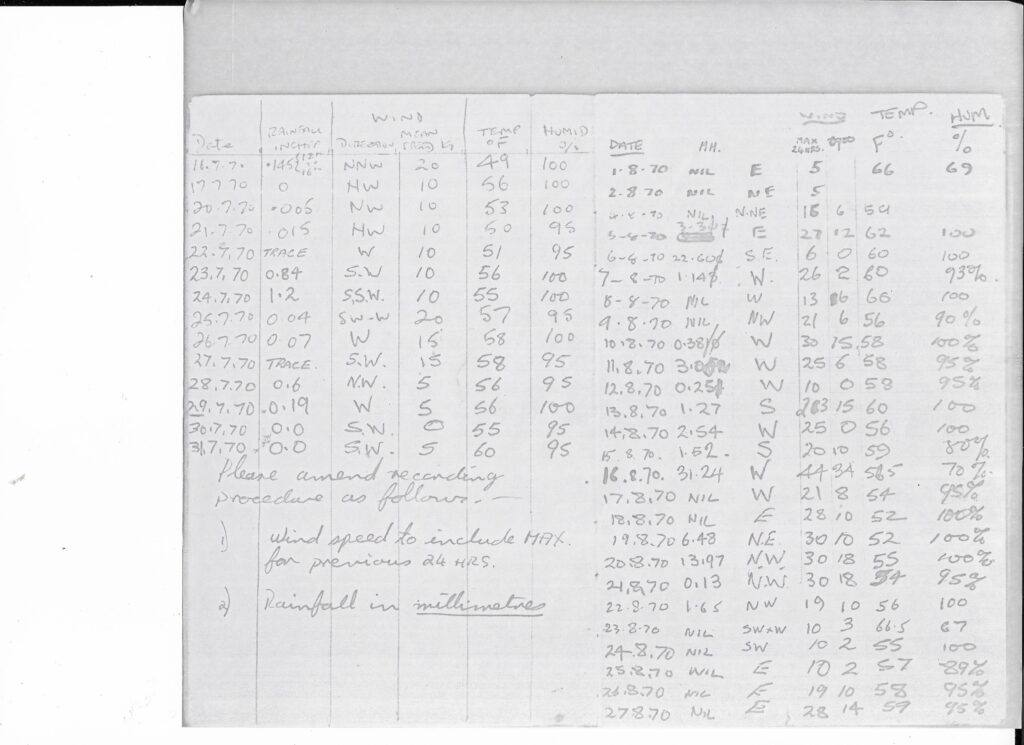 WIND
Date RAINFALL INCHES DIRECTION MEAN SPEED TEMP °F HUMID %
16.7.70 .145 NNW 20 49 100
17.7.70 0 NW 10 56 100
20.7.70 .005 NW 10 53 100
21.7.70 .015 NW 10 50 95
22.7.70 TRACE W 10 51 95
23.7.70 0.84 S.W 10 56 100
24.7.70 1.2 S.S.W. 10 55 100
25.7.70 0.04 SW-W 20 57 95
26.7.70 0.07 W 15 58 100
27.7.70 TRACE. S.W. 15 58 95
28.7.70 0.6 N.W. 5 56 95
29.7.70 0.19 W 5 56 100
30.7.70 0.0 S.W. 0 55 95
31.7.70 0.0 S.W. 5 60 95
Please amend recording
procedure as follows:—
1) Wind speed to include MAX.
for previous 24 HRS.
2) Rainfall in millimetres
WIND TEMP. HUM.
DATE MM. MAX 24HRS. F° %
1.8.70 NIL E 5 66 69
2.8.70 NIL NE 5
NIL N.NE 15 6 59
5-8-70 E 27 12 62 100
6-8-70 22.60 S.E. 6 0 60 100
7-8-70 1.14 W. 26 2 60 93%
8-8-70 NIL W 13 6 66 100
9.8.70 NIL NW 21 6 56 90%
10.8.70 0.38 W 30 15 58 100%
11.8.70 W 25 6 58 95%
12.8.70 0.25 W 10 0 58 95%
13.8.70 1.27 S 15 60 100
14.8.70 2.54 W 25 0 56 100
15.8.70. 1.52. S 20 10 59 80%
16.8.70. 31.24 W 44 34 56.5 70%
17.8.70 NIL W 21 8 54 95%
18.8.70 NIL E 28 10 52 100%
19.8.70 6.48 N.E. 30 10 52 100%
20.8.70 13.97 N.W 30 18 55 100%
21.8.70 0.13 N.W 30 18 54 95%
22.8.70 1.65 NW 19 10 56 100
23.8.70 NIL SWxW 10 3 66.5 67
24.8.70 NIL SW 10 2 55 100
25.8.70 NIL E 10 2 57 89%
26.8.70 NIL E 19 10 58 95%
27.8.70 NIL E 28 14 59 95%